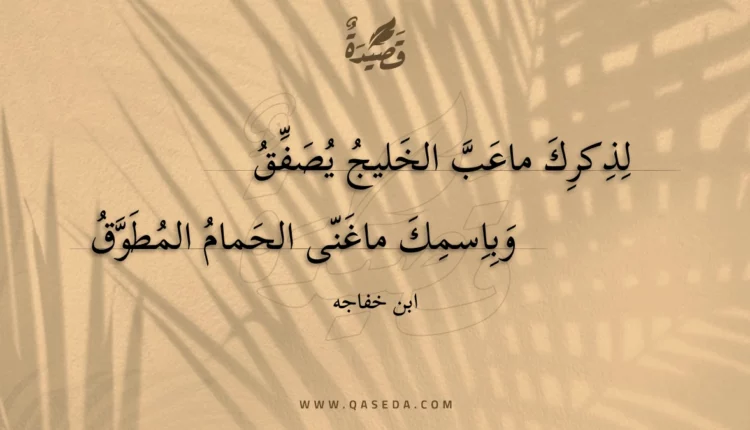 قَصِيْدَةٌ
لِذِكرِكَ ماعَبَّ الخَليجُ يُصَفِّقُ
وَبِاِسمِكَ ماغَنّى الحَمامُ المُطَوَّقُ
ابن خفاجه
WWW.QASEDA.COM